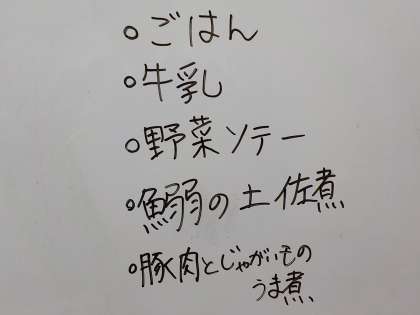 ・ごはん
・牛乳
・野菜ソテー
・鰯の土佐煮
・豚肉とじゃがいもの
うま煮